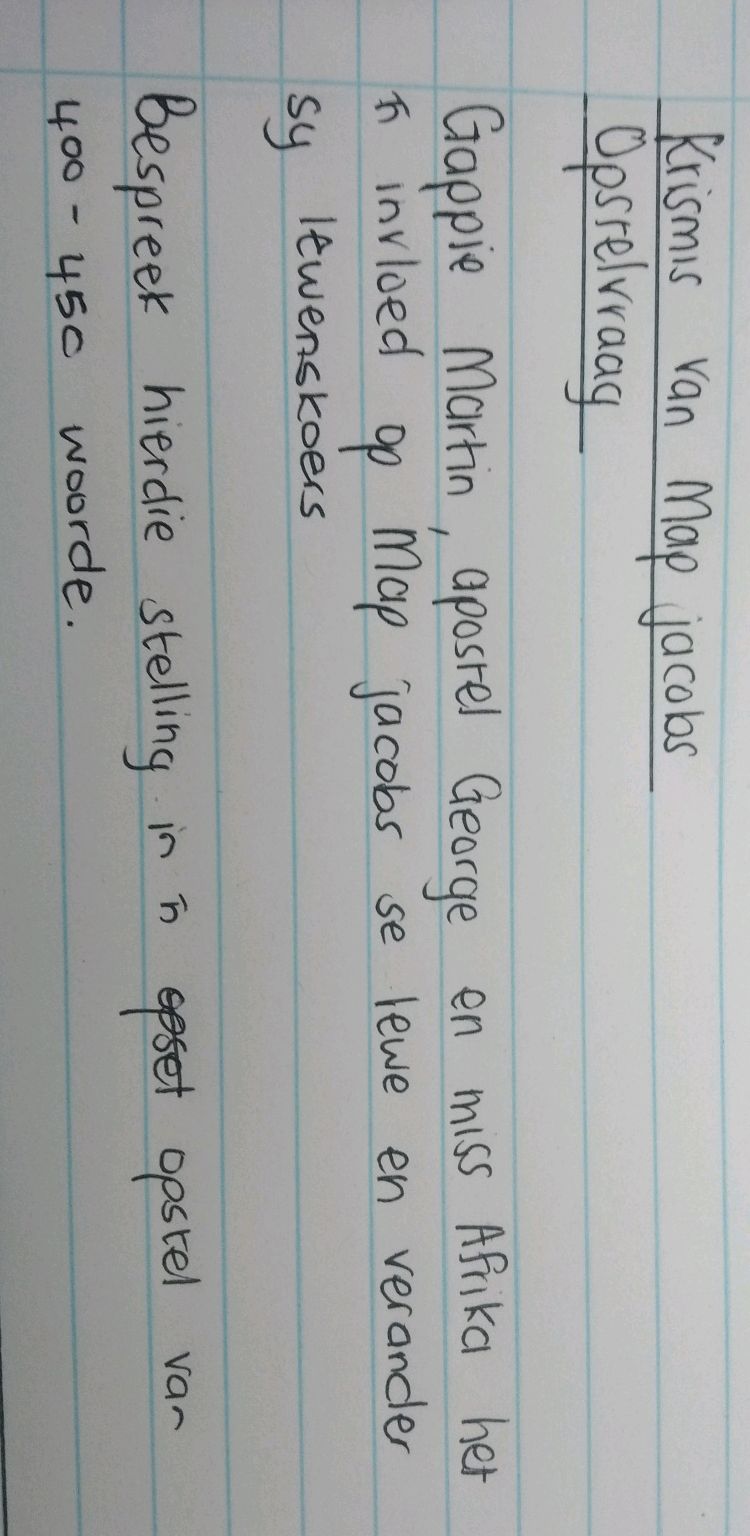 Krismis van Map jacobs
Opstelvraag
Gappie Martin, apostel George en miss Afrika het
'n invloed op Map jacobs se lewe en verander
sy lewenskoers
Bespreek hierdie stelling in 'n opset opstel van
400 - 450 woorde.